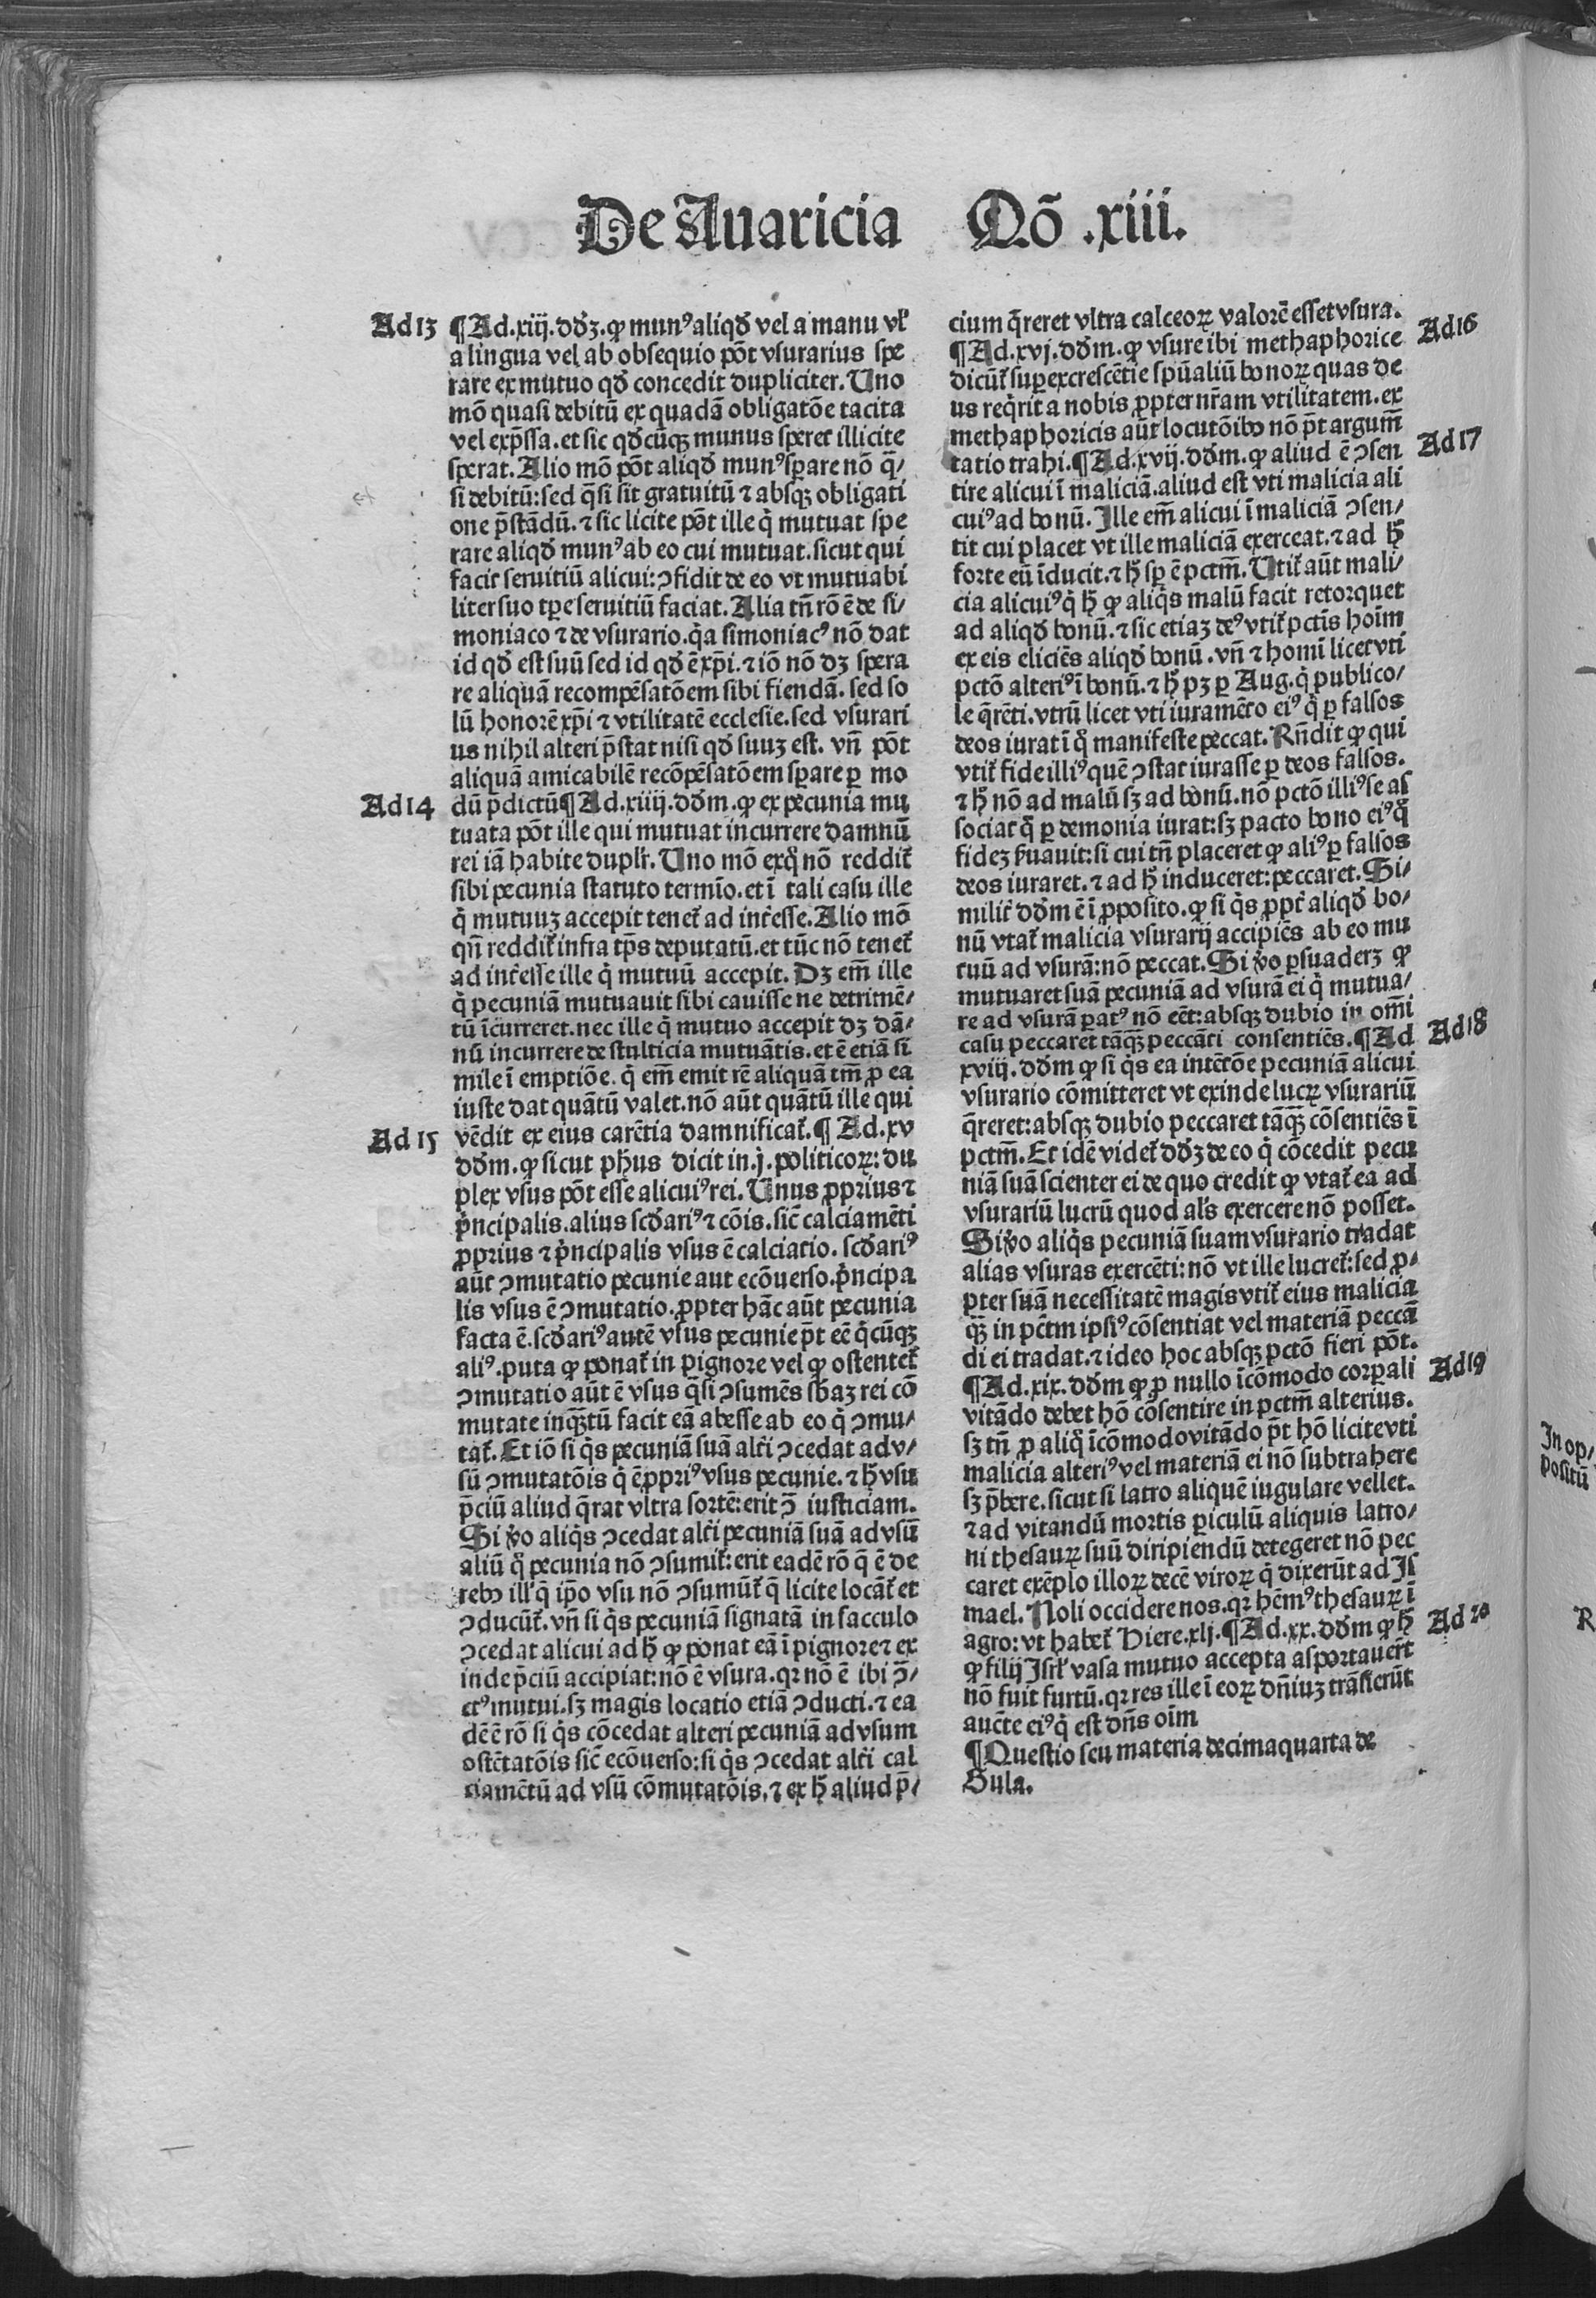 De Auaricia Qō .xiii.
Ad 13
¶Ad.xiij.ddꝫ.ꝙ munꝰ aliqđ vel a manu vľ
a lingua vel ab obsequio pōt vsurarius spe
rare ex mutuo qđ concedit dupliciter. Uno
mō quasi debitū ex quadā obligatōe tacita
vel exp̄ssa. et sic qđcūqꝫ munus speret illicite
sperat. Alio mō pōt aliqđ munꝰ sꝑare nō q̄/
si debitū: sed q̄si sit gratuitū ⁊ absqꝫ obligati
one p̄stādū. ⁊ sic licite pōt ille q̇ mutuat spe
rare aliqđ munꝰ ab eo cui mutuat. sicut qui
facit seruitiū alicui: ꝯfidit de eo vt mutuabi
liter suo tꝑe seruitiū faciat. Alia tn̄ rō ē de si/
moniaco ⁊ de vsurario. q̇a simoniacꝰ nō dat
id qđ est suū sed id qđ ē xp̄i. ⁊ iō nō dꝫ spera
re aliquā recompēsatōem sibi fiendā. sed so
lū honorē xp̄i ⁊ vtilitatē ecclesie. sed vsurari
us nihil alteri p̄stat nisi qđ suuꝫ est. vn̄ pōt
aliquā amicabilē recōpēsatōem sꝑare ꝑ mo
Ad 14
dū p̄dictū ¶Ad.xiiij.đđm.ꝙ ex pecunia mu
tuata pōt ille qui mutuat incurrere damnū
rei iā habite duplr̄. Uno mō ex q̊ nō reddiť
sibi pecunia statuto termīo. et ī tali casu ille
q̇ mutuuꝫ accepit teneť ad int̄esse. Alio mō
qn̄ reddiť infra tp̄s deputatū. et tūc nō teneť
ad int̄esse ille q̇ mutuū accepit. Dꝫ em̄ ille
q̇ pecuniā mutuauit sibi cauisse ne detrimē/
tū īcurreret. nec ille q̇ mutuo accepit dꝫ dā/
nū incurrere de stulticia mutuātis. et ē etiā si
mile ī emptiōe. q̇ em̄ emit rē aliquā tm̄ ꝓ ea
iuste dat quātū valet. nō aūt quātū ille qui
Ad 15
vēdit ex eius carētia damnificať. ¶Ad.xv
đđm.ꝙ sicut ph̄us dicit in.j. politicoꝝ: du
plex vsus pōt esse alicuiꝰ rei. Unus ꝓprius ⁊
ṗncipalis. alius scđariꝰ ⁊ cōis. sic̄ calciamēti
ꝓprius ⁊ ṗncipalis vsus ē calciatio. scđariꝰ
aūt ꝯmutatio pecunie aut ecōuerso. ṗncipa
lis vsus ē ꝯmutatio. ꝓpter hāc aūt pecunia
facta ē. scđariꝰ autē vsus pecunie p̄t eē q̇cūqꝫ
aliꝰ. puta ꝙ ponať in pignore vel ꝙ ostenteť
ꝯmutatio aūt ē vsus q̄si ꝯsumēs sb̄aꝫ rei cō
mutate inq̄ꝫtū facit eā abesse ab eo q̇ ꝯmu/
tať. Et iō si q̇s pecuniā suā alťi ꝯcedat ad v/
sū ꝯmutatōis q̇ ē ꝓpriꝰ vsus pecunie. ⁊ ħ vsu
p̄ciū aliud q̄rat vltra sortē: erit ꝯ̄ iusticiam.
Si ṽo aliq̇s ꝯcedat alťi pecuniā suā ad vsū
aliū q̊ pecunia nō ꝯsumiť: erit eadē rō q̄ ē de
rebꝰ ill̓ q̄ ip̄o vsu nō ꝯsumūť q̄ licite locāť et
ꝯducūť. vn̄ si q̇s pecuniā signatā in sacculo
ꝯcedat alicui ad ħ ꝙ ponat eā ī pignore ⁊ ex
inde p̄ciū accipiat: nō ē vsura. qꝛ nō ē ibi ꝯ̄/
ctꝰ mutui. sꝫ magis locatio etiā ꝯducti. ⁊ ea
dē ē rō si q̇s cōcedat alteri pecuniā ad vsum
ostētatōis sic̄ ecōuerso: si q̇s ꝯcedat alťi cal
ciamētū ad vsū cōmutatōis. ⁊ ex ħ aliud p̄/
cium q̄reret vltra calceoꝝ valorē esset vsura.
Ad 16
¶Ad.xvj.đđm.ꝙ vsure ibi methaphorice
dicūť suꝑexcrescētie spūaliū bonoꝝ quas de
us req̇rit a nobis ꝓpter nr̄am vtilitatem. ex
methaphoricis aūt locutōibꝰ nō p̄t argum̄
Ad 17
tatio trahi. ¶Ad.xvij.đđm.ꝙ aliud ē ꝯsen
tire alicui ī maliciā. aliud est vti malicia ali
cuiꝰ ad bonū. Ille em̄ alicui ī maliciā ꝯsen/
tit cui placet vt ille maliciā exerceat. ⁊ ad ħ
forte eū īducit. ⁊ ħ sꝑ ē pctm̄. Utiť aūt mali/
cia alicuiꝰ q̇ ħ ꝙ aliq̇s malū facit retorquet
ad aliqđ bonū. ⁊ sic etiaꝫ deꝰ vtiť pctīs hoīm
ex eis eliciēs aliqđ bonū. vn̄ ⁊ homī licet vti
pctō alteriꝰ ī bonū. ⁊ ħ pꝫ ꝑ Aug. q̇ publico/
le q̄rēti. vtrū licet vti iuramēto eiꝰ q̇ ꝑ falsos
deos iurat ī q̊ manifeste peccat. Rn̄dit ꝙ qui
vtiť fide illiꝰ quē ꝯstat iurasse ꝑ deos falsos.
⁊ ħ nō ad malū sꝫ ad bonū. nō pctō illiꝰ se as
sociat q̊ ꝑ demonia iurat: sꝫ pacto bono eiꝰ q̊
fideꝫ ẜuauit: si cui tn̄ placeret ꝙ aliꝰ ꝑ falsos
deos iuraret. ⁊ ad ħ induceret: peccaret. Si/
miliť đđm ē ī ꝓposito. ꝙ si q̇s ꝓpť aliqđ bo/
nū vtať malicia vsurarij accipiēs ab eo mu
tuū ad vsurā: nō peccat. Si ṽo ꝑsuaderꝫ ꝙ
mutuaret suā pecuniā ad vsurā ei q̇ mutua/
re ad vsurā ꝑatꝰ nō eēt: absqꝫ dubio in om̄i
Ad 18
casu peccaret tāq̄ꝫ peccāti consentiēs. ¶Ad
xviij.đđm ꝙ si q̇s ea intētōe pecuniā alicui
vsurario cōmitteret vt exinde lucꝝ vsurariū
q̄reret: absqꝫ dubio peccaret tāq̄ꝫ cōsentiēs ī
pctm̄. Et idē videť đđꝫ de eo q̇ cōcedit pecu
niā suā scienter ei de quo credit ꝙ vtať ea ad
vsurariū lucrū quod al̓s exercere nō posset.
Si ṽo aliq̇s pecuniā suam vsurario tradat
alias vsuras exercēti: nō vt ille lucreť: sed ꝓ/
pter suā necessitatē magis vtiť eius malicia
q̄ꝫ in pctm̄ ipsiꝰ cōsentiat vel materiā peccā
di ei tradat. ⁊ ideo hoc absqꝫ pctō fieri pōt.
Ad 19
¶Ad.xix.đđm ꝙ ꝓ nullo īcōmodo corꝑali
vitādo debet hō cōsentire in pctm̄ alterius.
sꝫ tn̄ ꝓ aliq̊ īcōmodo vitādo p̄t hō licite vti
malicia alteriꝰ vel materiā ei nō subtrahere
sꝫ p̄bere. sicut si latro aliquē iugulare vellet.
⁊ ad vitandū mortis ꝑiculū aliquis latro/
ni thesauꝝ suū diripiendū detegeret nō pec
caret exēplo illoꝝ decē viroꝝ q̇ dixerūt ad Is
mael. Noli occidere nos. qꝛ hēmꝰ thesauꝝ ī
Ad 20
agro: vt habeť Hiere.xlj. ¶Ad.xx.đđm ꝙ ħ
ꝙ filij Isrľ vasa mutuo accepta asportauer̄t
nō fuit furtū. qꝛ res ille ī eoꝝ dn̄iuꝫ trāsierūt
auc̄te eiꝰ q̇ est dn̄s oīm
¶Questio seu materia decimaquarta de
Gula.
In op/
positū
R